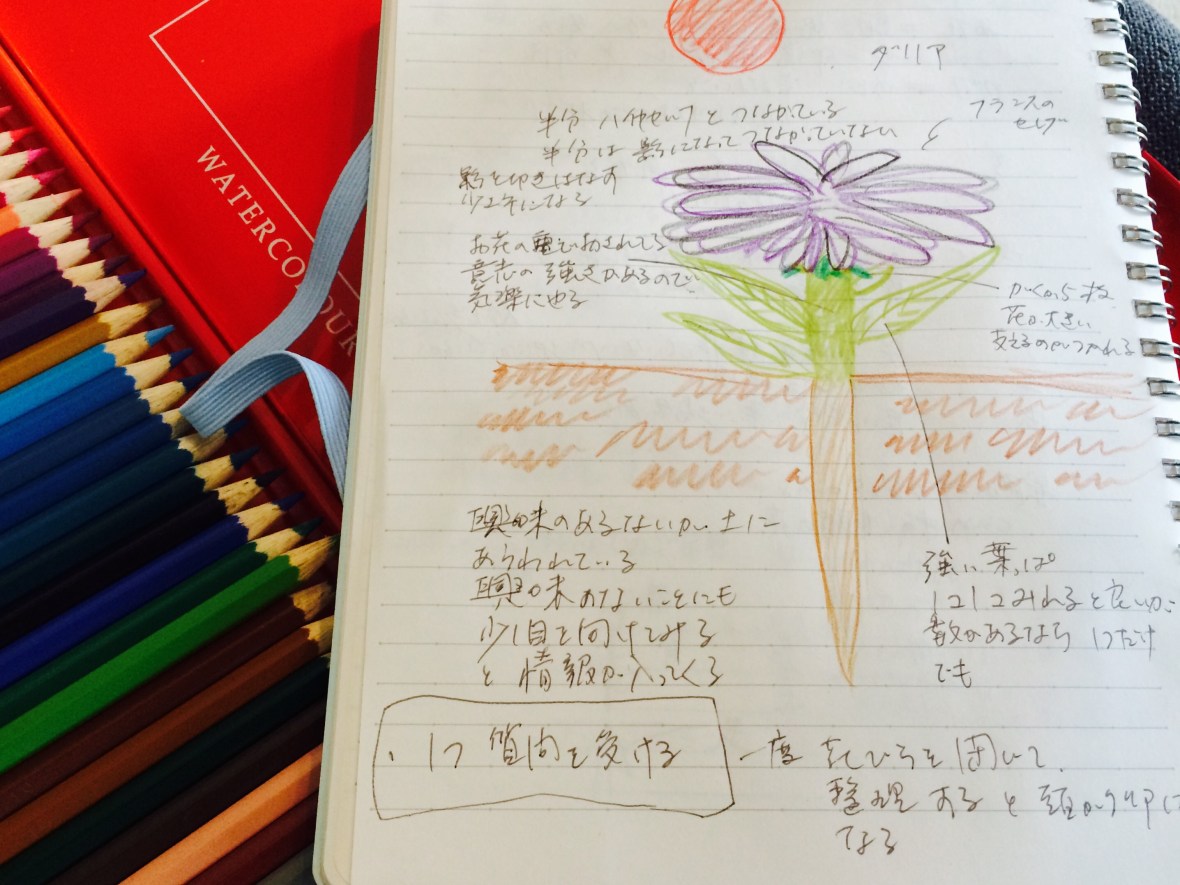 WATERCOLOUR
ダリア
半分 ハイヤセルフと つながっている
半分は 影になって つながっていない
フランスの
セレブ
影を切りはなす
少エネになる
お花の重さにおされてる
意志の強さがあるので、
気楽にやる
花が大きい
支えるのがつかれる
興味のあるないが、土に
あらわれている
興味のないことにも
少し目を向けてみる
と 情報が入ってくる
強い葉っぱ
1コ1コみれると良いが、
数があるなら 1つだけ
でも
・1つ 質問を受ける
一度 花びらを閉いて、
整理すると頭がクリアに
なる